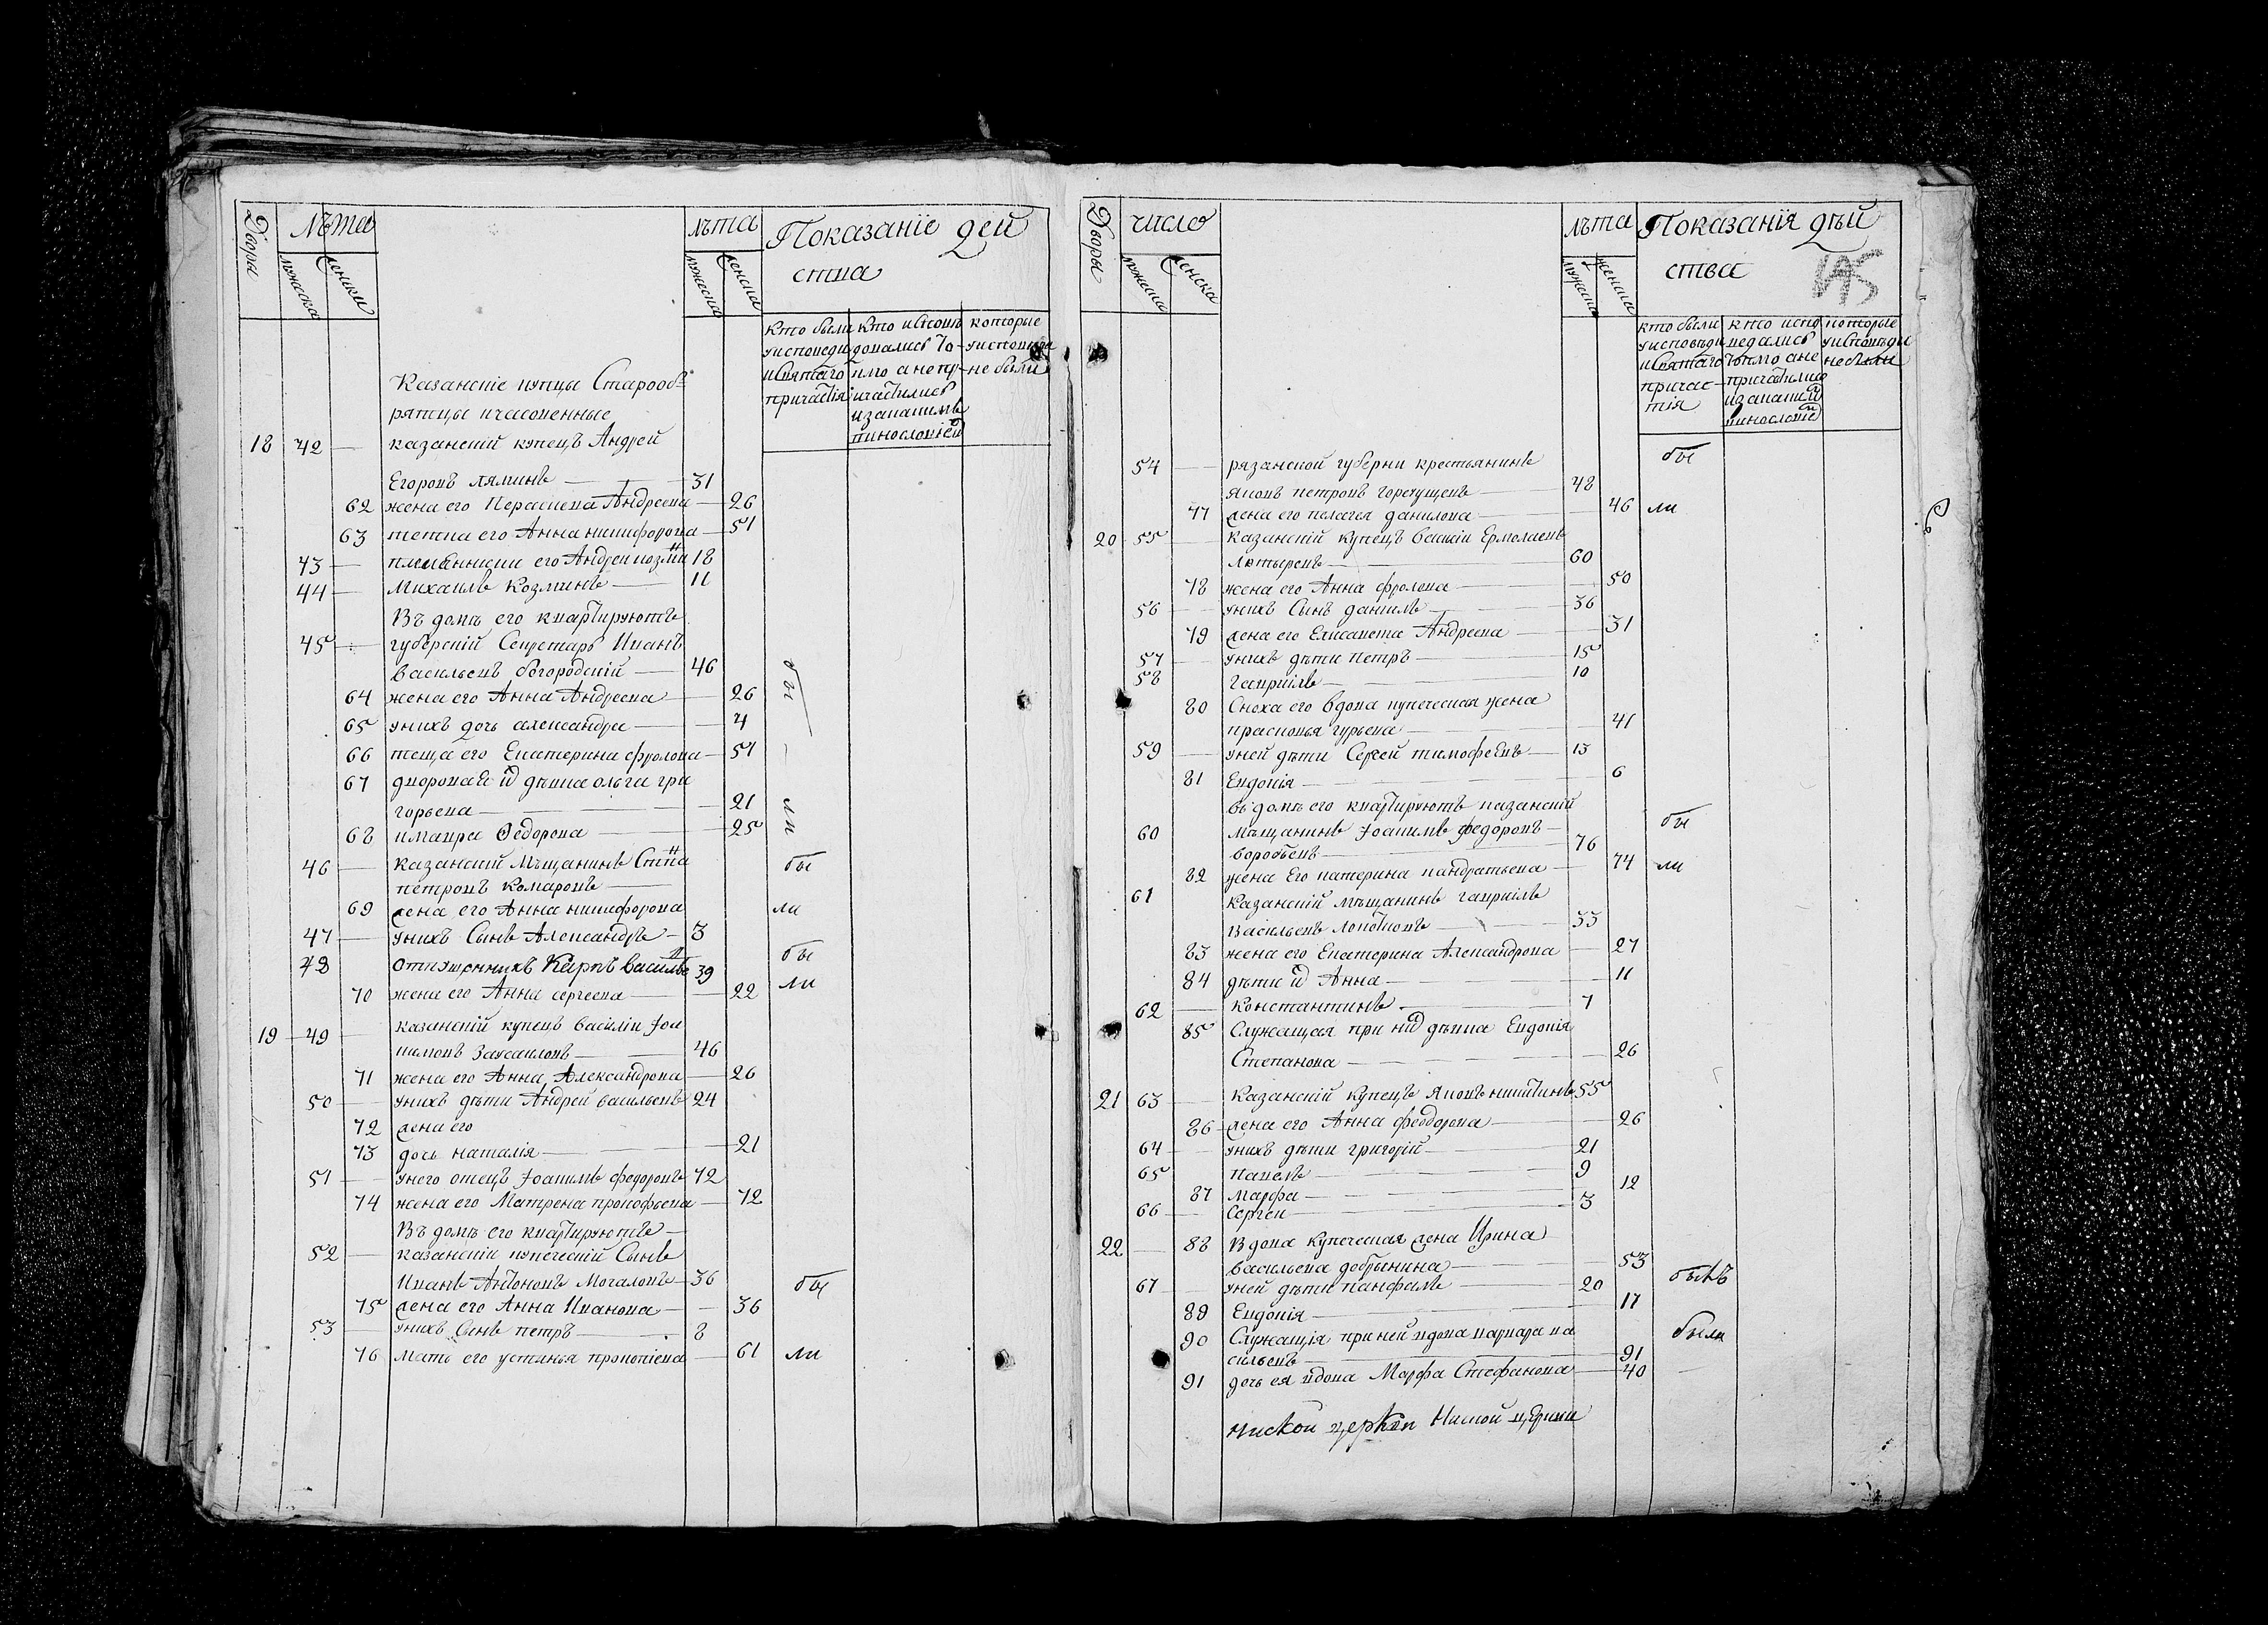 Дворы
Лѣта
мужеска
женски
лѣта
мужеска
женска
Показаніе дей
ства
кто были
у исповеди
и святаго
причастія
кто испов
довались то
кмо а не пр
ичастились
и за какимъ
винословіем
которые
у исповеди
не были
Казанскіе купцы Старооб
рятцы и часовенные
18 42 — казанскій купецъ Андрей
Егоровъ ляминъ — 31
62 жена его Параскева Андреева — 26
63 тетка его Анна никифорова — 51
43 — племянники его Андрей козми 18
44 — Михаилъ Козминъ — 11
Въ домѣ его квартируютъ
45 — губерскій Секретарь Иванъ
васильевъ богородскій — 46
64 жена его Анна Андреева — 26
65 у нихъ дочь александра — 4
66 теща его Екатерина фролова — 51
67 дворовая ихъ дѣвка ольга гри
горьева — 21
68 и мавра Ѳедорова — 25
бы
ли
46 — казанскій Мѣщанинъ
петровъ Комаровъ —
бы
69 жена его Анна никифорова
ли
47 — у нихъ Сынъ Александръ — 3
48 Отпущенникъ Карпъ василье 39
бы
70 жена его Анна сергеева — 22
ли
19 49 — казанскій купецъ василіи Іоа
кимовъ — 46
71 жена его Анна Александрова — 26
50 — у нихъ дѣти Андрей васильевъ 24
72 жена его
73 дочь наталія — 21
51 — у него отецъ Іоакимъ федоровъ 72
74 жена его Матрена прокофьева — 72
Въ домѣ его квартируютъ —
52 — казанскіи купеческій Сынъ
Иванъ Антоновъ Мочаловъ — 36
бы
75 жена его Анна Иванова — 36
53 — у нихъ Сынъ петръ — 8
76 мать его устинья прокопіева — 61
ли
Дворы
число
мужеска
женска
лѣта
мужеска
женска
Показанія дѣй
ства
145
кто были
у исповѣди
и святаго
причас-
тія
кто испо
ведались
токмо а не
причастились
и за каким
винословіем
которые
у исповѣди
не были
54 — рязанской губерни крестьянинъ
бы
яковъ петровъ — 48
77 жена его пелагея данилова — 46
ли
20 55 — казанскій купецъ василіи Ермолаевъ
— 60
78 жена его Анна фролова — 50
56 — у нихъ Сынъ данилъ — 36
79 жена его Елисавета Андреева — 31
57 — у нихъ дѣти петръ — 15
58 гавріилъ — 10
80 Сноха его вдова купеческая жена
прасковья гурьева — 41
59 — у ней дѣти Сергей тимофеевъ — 13
81 Евдокія — 6
въ домѣ его квартируютъ казанскій
60 мѣщанинъ Іоакимъ федоровъ —
воробьевъ — 76
бы
82 жена Его катерина кандратьева — 74
ли
61 казанскій мѣщанинъ гавріилъ
васильевъ — 33
83 жена его Екатерина Александрова — 27
84 дѣти их Анна — 11
62 — константинъ — 7
85 Служащая при них дѣвка Евдокія
Степанова — 26
21 63 — казанскій купецъ Яковъ никитинъ 55
86 жена его Анна феодорова — 26
64 — у нихъ дѣти григорій — 21
65 павелъ — 9
87 Марфа — 12
66 — Сергеи — 3
22 — 88 Вдова купеческая жена Ирина
васильева добрынина — 53
67 — у ней дѣти панфилъ — 20
былъ
89 Евдокія — 17
90 Служащія при ней вдова варвара ва
сильевъ — 91
были
91 дочь ея вдова Марфа Стефанова — 40